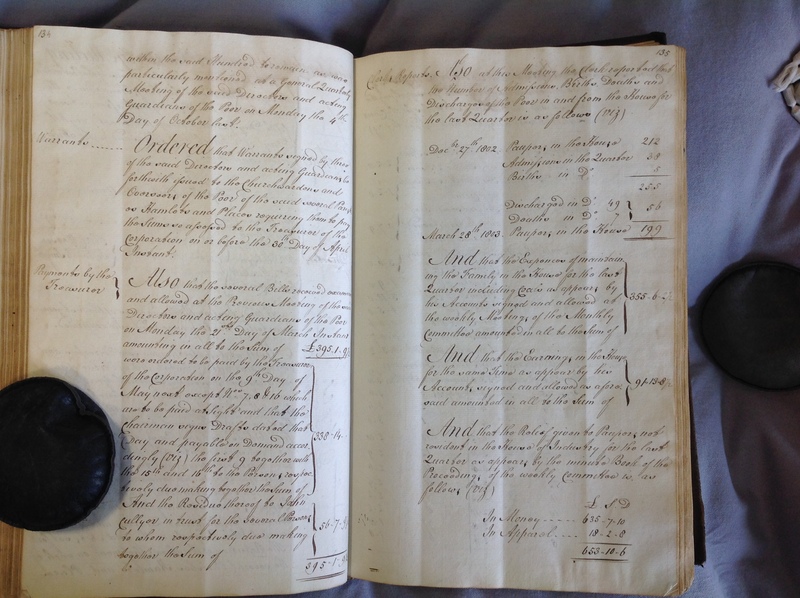 134
within the said Hundred to remain as was
particularly mentioned at a General Quarterly
Meeting of the said Directors and acting
Guardians of the Poor on Monday the 4th
Day of October last.
Warrants
Ordered that Warrants signed by three
of the said Directors and acting Guardians be
forthwith issued to the Churchwardens and
Overseers of the Poor of the said several Parishes
or Hamlets and Places requiring them to pay
the Sums so assessed to the Treasurer of the
Corporation on or before the 30th Day of April
Instant.
Payments by the
Treasurer
Also that the several Bills received
and allowed at the Previous Meeting of the said
Directors and acting Guardians of the Poor
on Monday the 21st Day of March Instant
amounting in all to the Sum of £395.1.9½
were ordered to be paid by the Treasurer
of the Corporation on the 9th Day of
May next except Nos 7. 8 & 16 which
are to be paid at sight and that the
Chairman signs Drafts dated that
Day and payable on Demand accor
dingly (Viz) the first 9 together with
the 15th and 16th to the Persons respec
tively due making together the Sum of 338-14-
And the Residue thereof to John
Cullyer in trust for the several Persons
to whom respectively due making
together the Sum of 56-7-9½
395-1-9½
135
Clerk Reports. Also at this Meeting the Clerk reported that
the Number of Admissions, Births, Deaths and
Discharges of the Poor in and from the House for
the last Quarter is as follows (Viz)
Decr. 27th 1802. Paupers in the House 212
Admissions in the Quarter 38
Births in Do 5
255
Discharged in Do 49
Deaths in Do 7 56
March 28th 1803 Paupers in the House 199
And that the Expences of maintain
ing the Family in the House for the last
Quarter including Coals as appears by
his Accounts signed and allowed at
the weekly Meetings of the Monthly
Committee amounted in all to the Sum of 355-6-2½
And that the Earnings in the House
for the same Time as appear by his
Accounts signed and allowed as afore
said amounted in all to the Sum of 91-13-8½
And that the Relief given to Paupers not
resident in the House of Industry for the last
Quarter as appears by the minute Book of the
Proceedings of the weekly Committee is as
follows (Viz)
£ S D
In Money 635-7-10
In Apparel 18-2-8
653-10-6